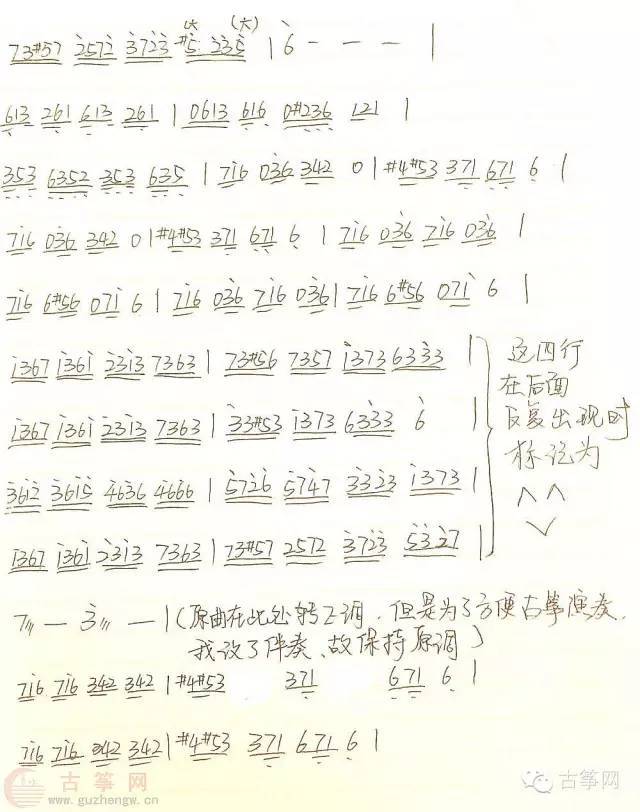 (六)
73#57 2572 3723 #5·235 | 6 - - - |
613 261 613 261 | 0613 616 0#236 121 |
353 6352 353 635 | 716 036 342 0 | #4#53 371 671 6 |
716 036 342 0 | #4#53 371 671 6 | 716 036 716 036 |
716 6#56 071 6 | 716 036 716 036 | 716 6#56 071 6 |
1367 1361 2313 7363 | 73#56 7357 1373 6333 |
1367 1361 2313 7363 | 33#53 1373 6333 6 |
3612 3615 4636 4666 | 5726 5747 3323 1373 |
1367 1361 2313 7363 | 73#57 2572 3723 5327 |
这四行
在后面
反复出现时
标记为
∧ ∧
∨
7 — 3 — | (原曲在此处转E调,但是为了方便古筝演奏,
我设了伴奏、故保持原调)
716 716 342 342 | #4#53 371 671 6 |
716 716 342 342 | #4#53 371 671 6 |
古筝网
www.guzhengw.cn
古筝网